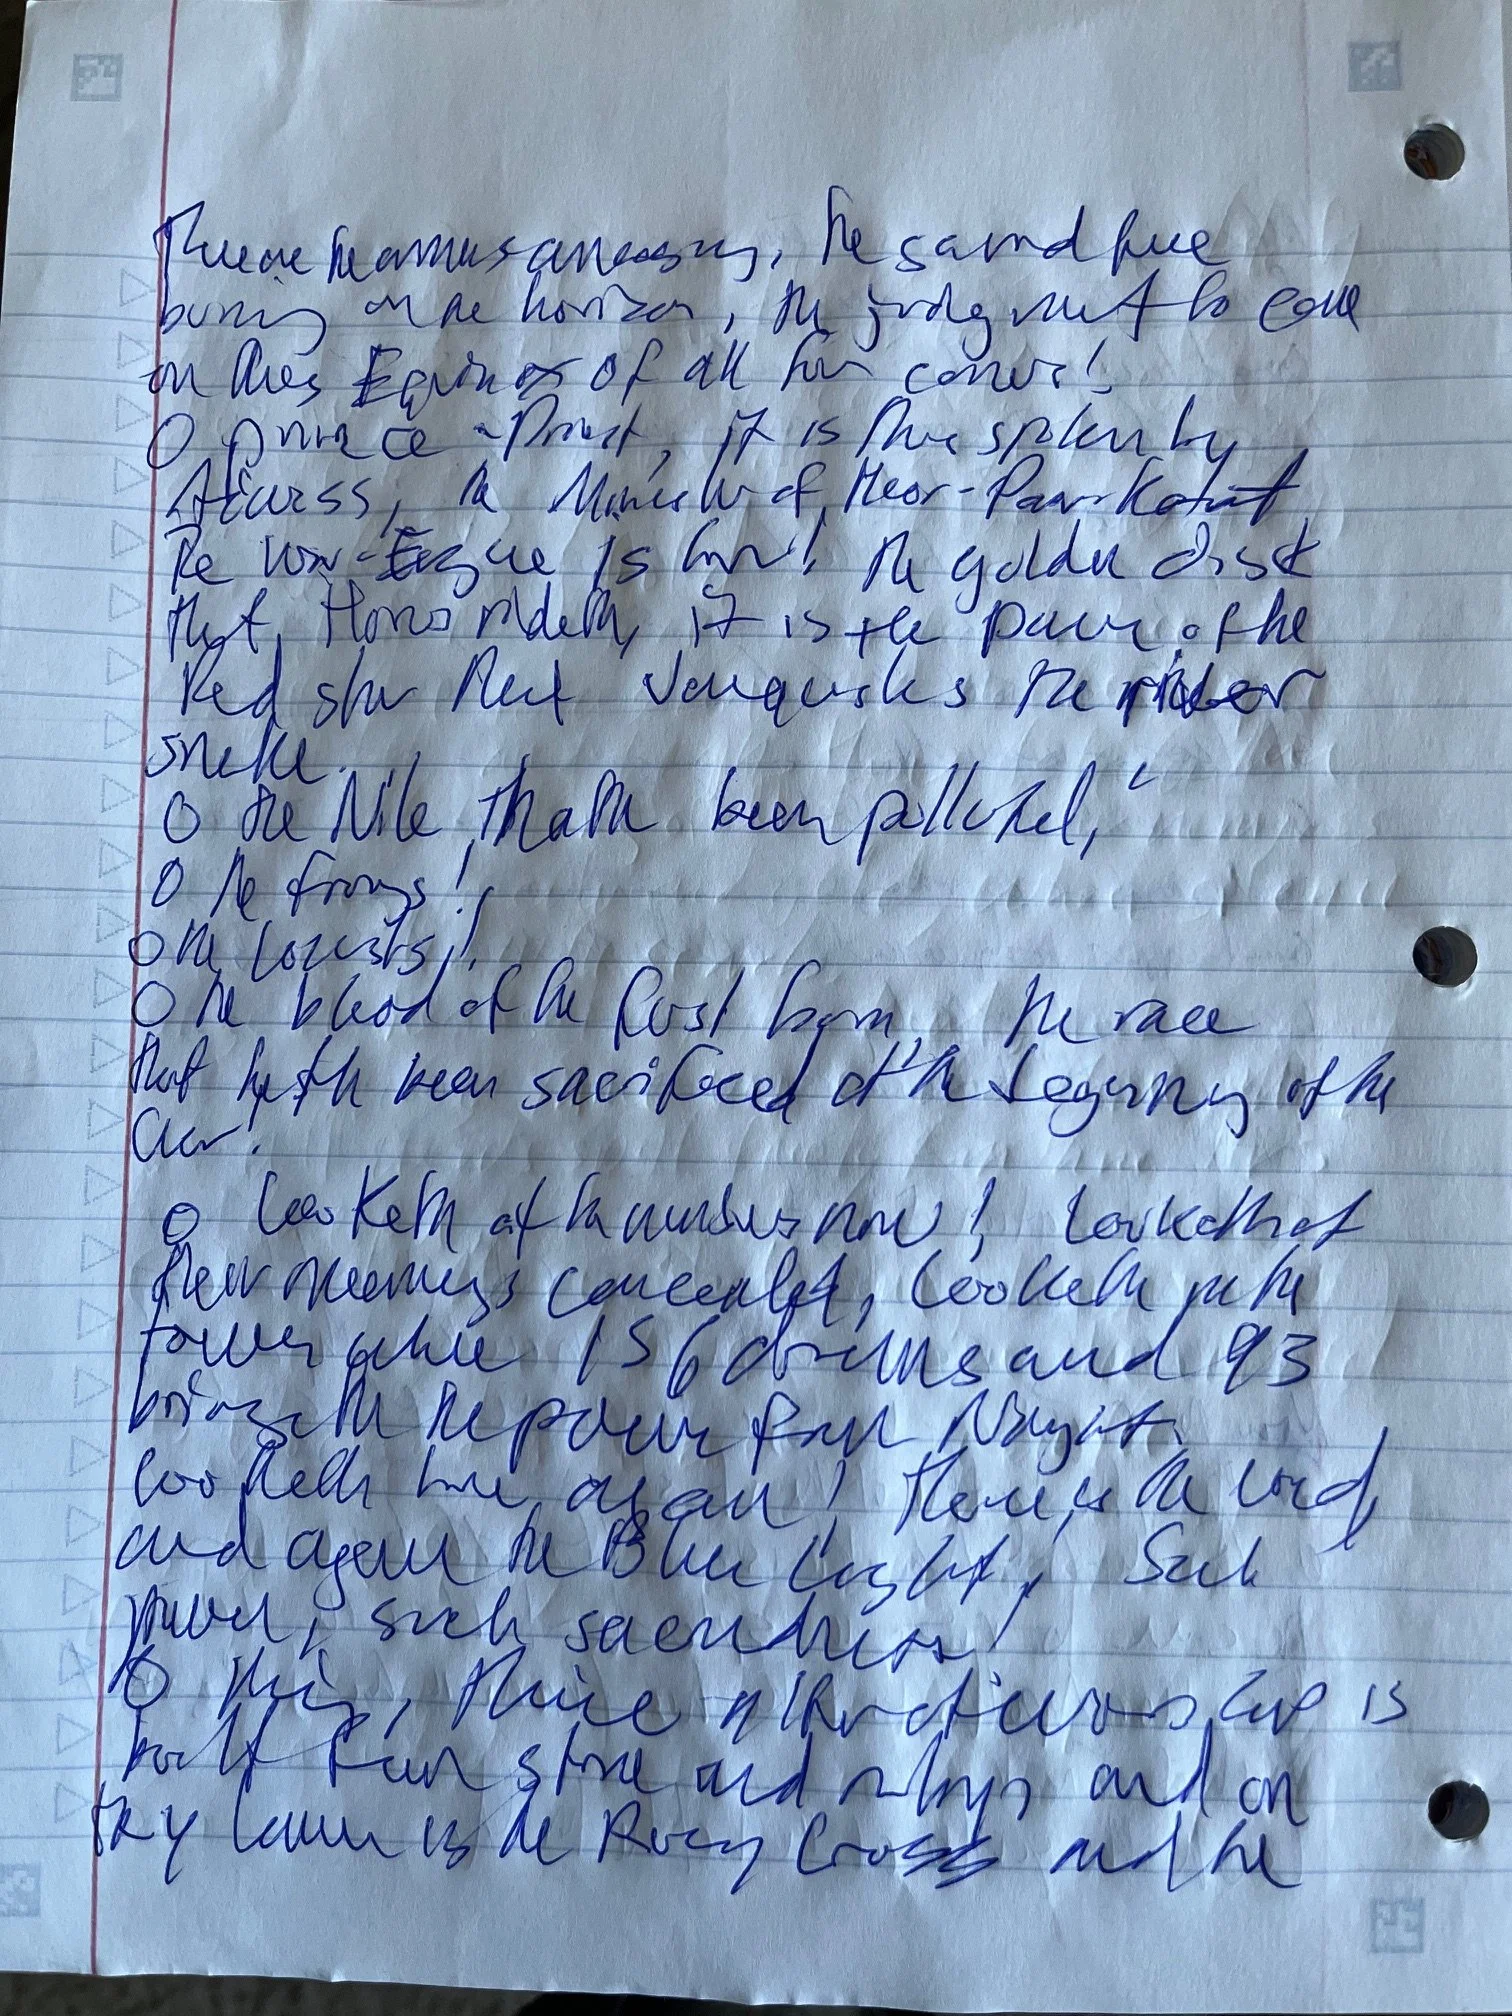 There the the sacred fire
burning on the horizon, the judgment to come
on this Equinox of all four corners!
O prince-Priest, it is thus spoken by
the Minister of Heor-Paar-Kat
The is here! the golden disk
that Horus rideth, it is the power of the
Red star that vanquishes the
snake.
O the Nile that hath been polluted,
O the frogs!
O the locusts!
O the blood of the first born, the race
that hath been sacrificed at the beginning of the
O looketh at the numbers now! Looketh at
their meanings concealed, looketh in the
tower where 156 drums and 93
bringeth the power from Nuit.
Looketh here again! There is the Lord,
and again the Blue Light! Such
power, such
O king, thine cup is
built from stone and rubys and on
thy is the Rosy Cross and the